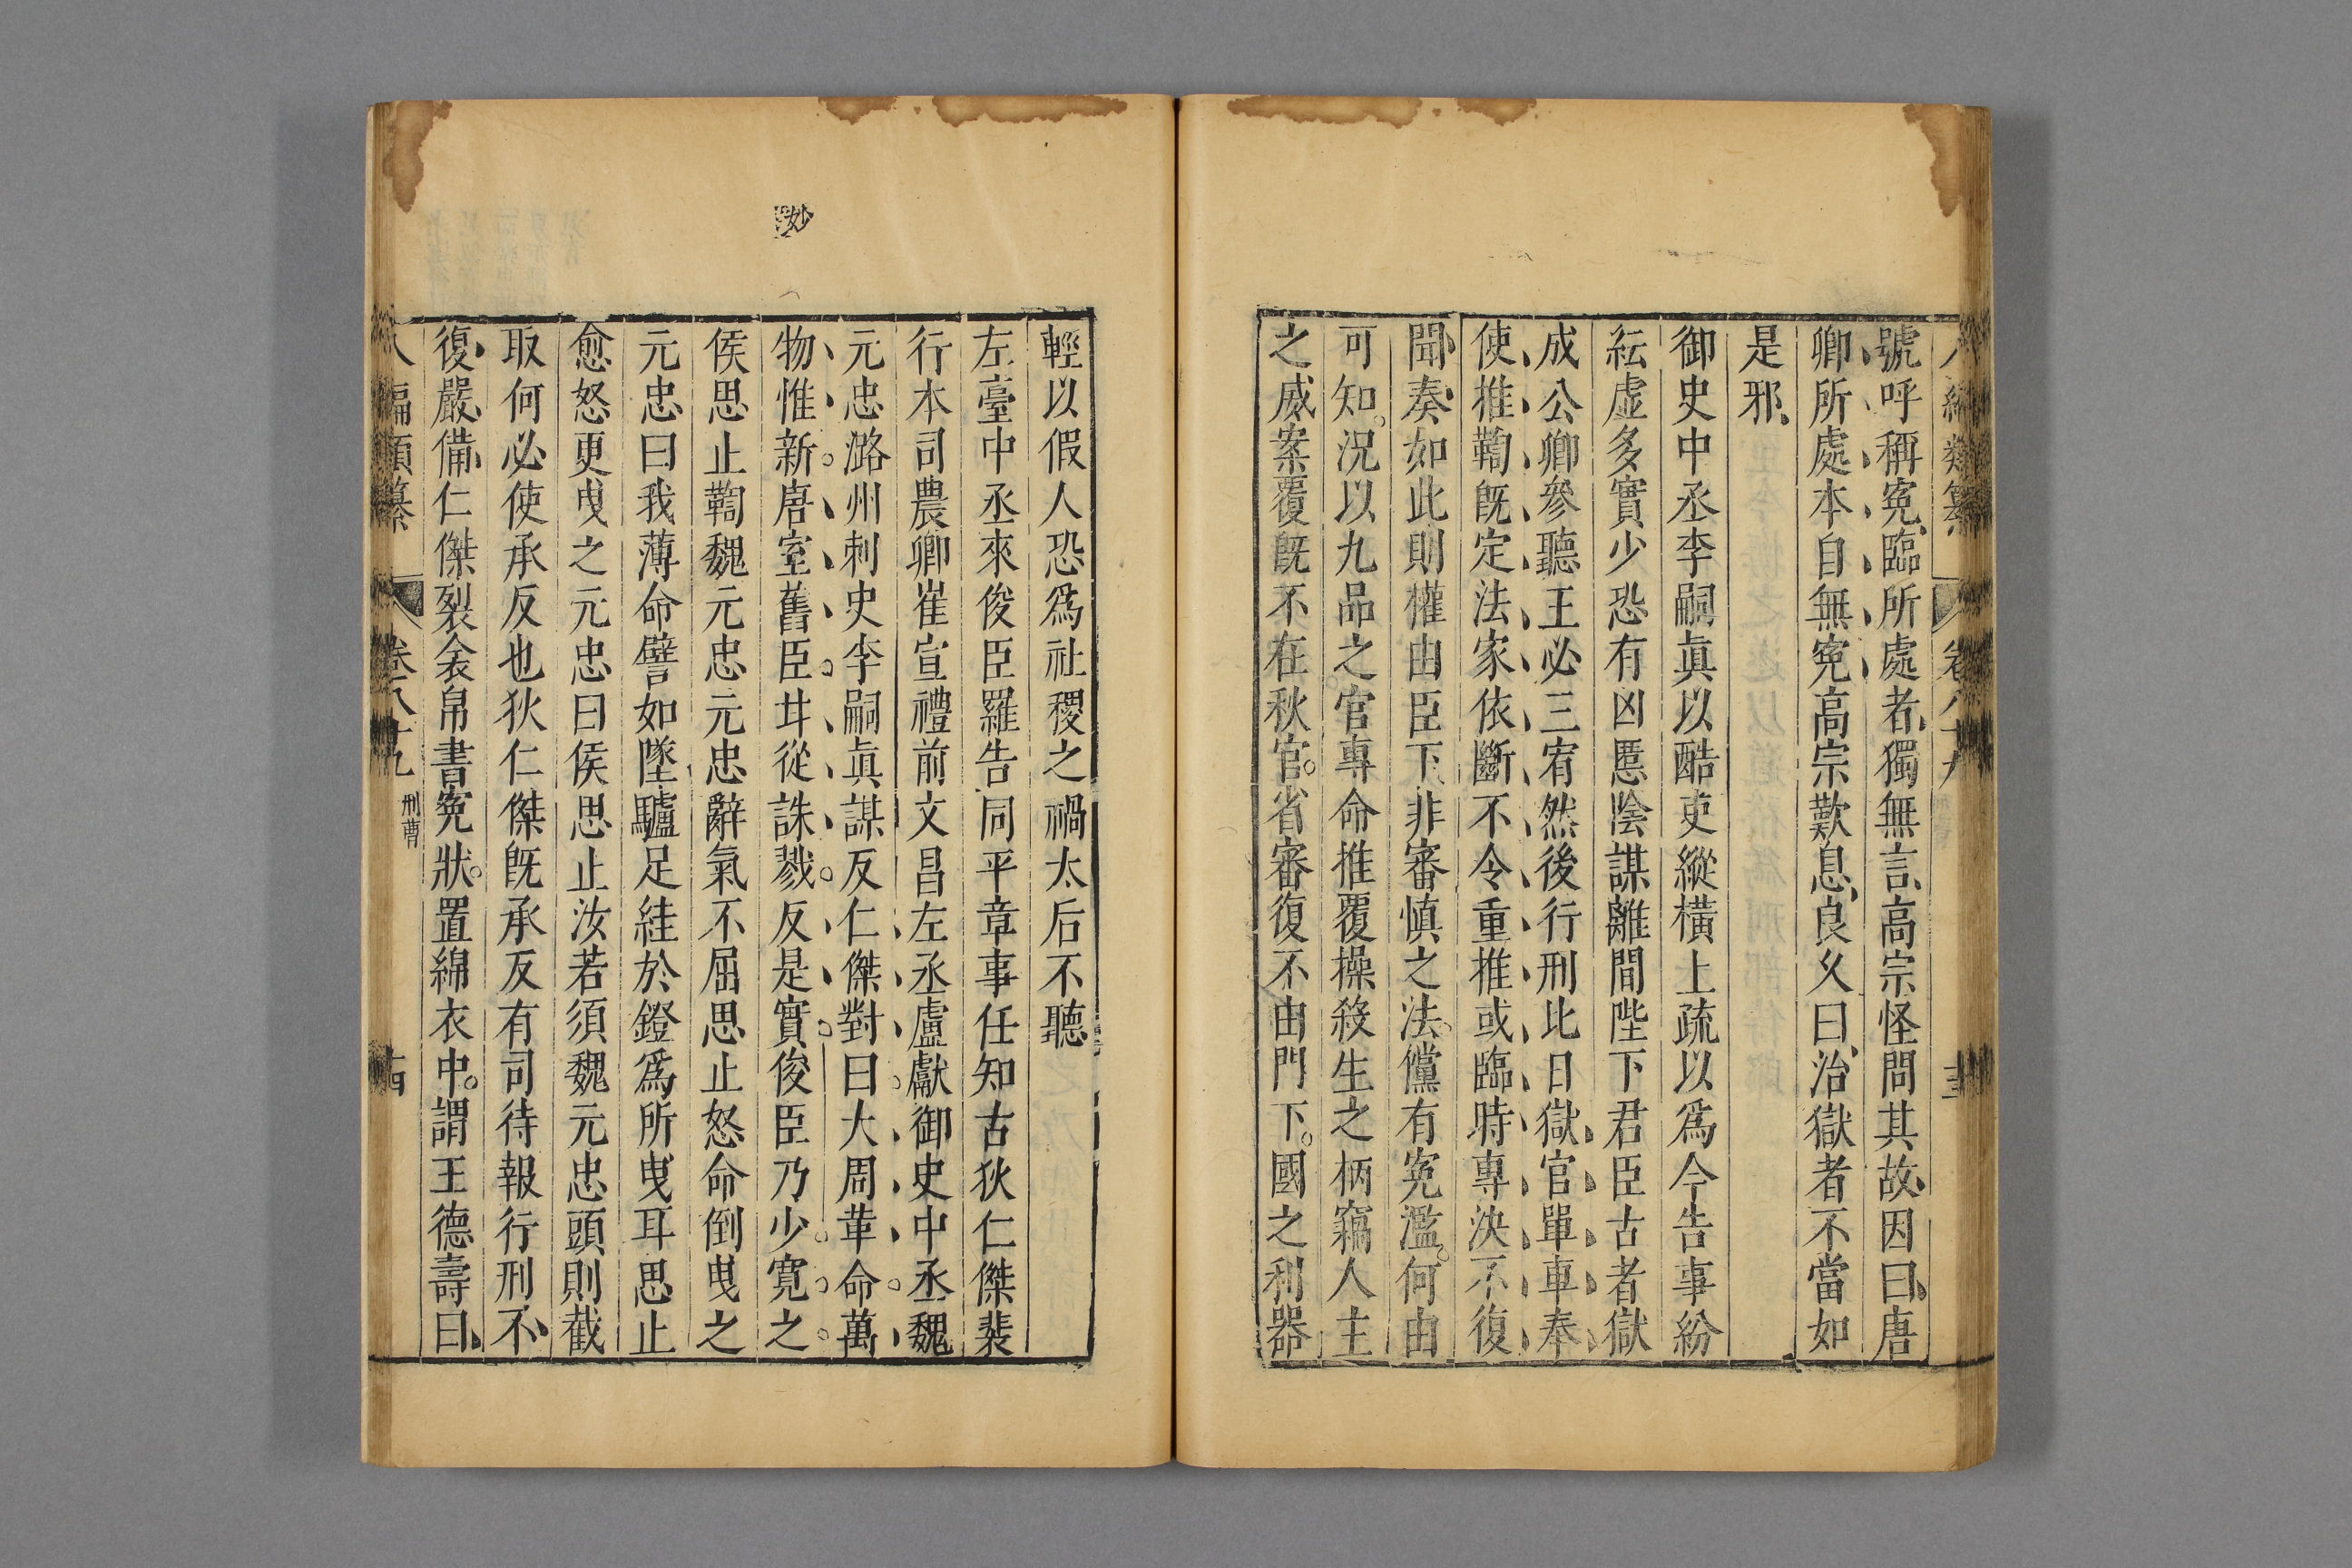 號呼稱寃臨所處者獨無言高宗怪問其故因曰唐
卿所處本自無寃高宗歎息良久曰治獄者不當如
是邪
御史中丞李嗣眞以酷吏縱橫上疏以爲今告事紛
紜虛多實少恐有凶慝陰謀離間陛下君臣古者獄
成公卿參聽王必三宥然後行刑比日獄官單車奉
使推鞫旣定法家依斷不令重推或臨時專決不復
聞奏如此則權由臣下非審愼之法儻有寃濫何由
可知況以九品之官專命推覆操殺生之柄竊人主
之威案覆旣不在秋官省審復不由門下國之利器
妙
輕以假人恐爲社稷之禍太后不聽
左臺中丞來俊臣羅告同平章事任知古狄仁傑裴
行本司農卿崔宣禮前文昌左丞盧獻御史中丞魏
元忠潞州刺史李嗣眞謀反仁傑對曰大周革命萬
物惟新唐室舊臣甘從誅戮反是實俊臣乃少寬之
侯思止鞫魏元忠元忠辭氣不屈思止怒命倒曳之
元忠曰我薄命譬如墜驢足絓於鐙爲所曳耳思止
愈怒更曳之元忠曰侯思止汝若須魏元忠頭則截
取何必使承反也狄仁傑旣承反有司待報行刑不
復嚴備仁傑裂衾帛書寃狀置綿衣中謂王德壽曰
八編類纂 卷八十九 刑曹 十四